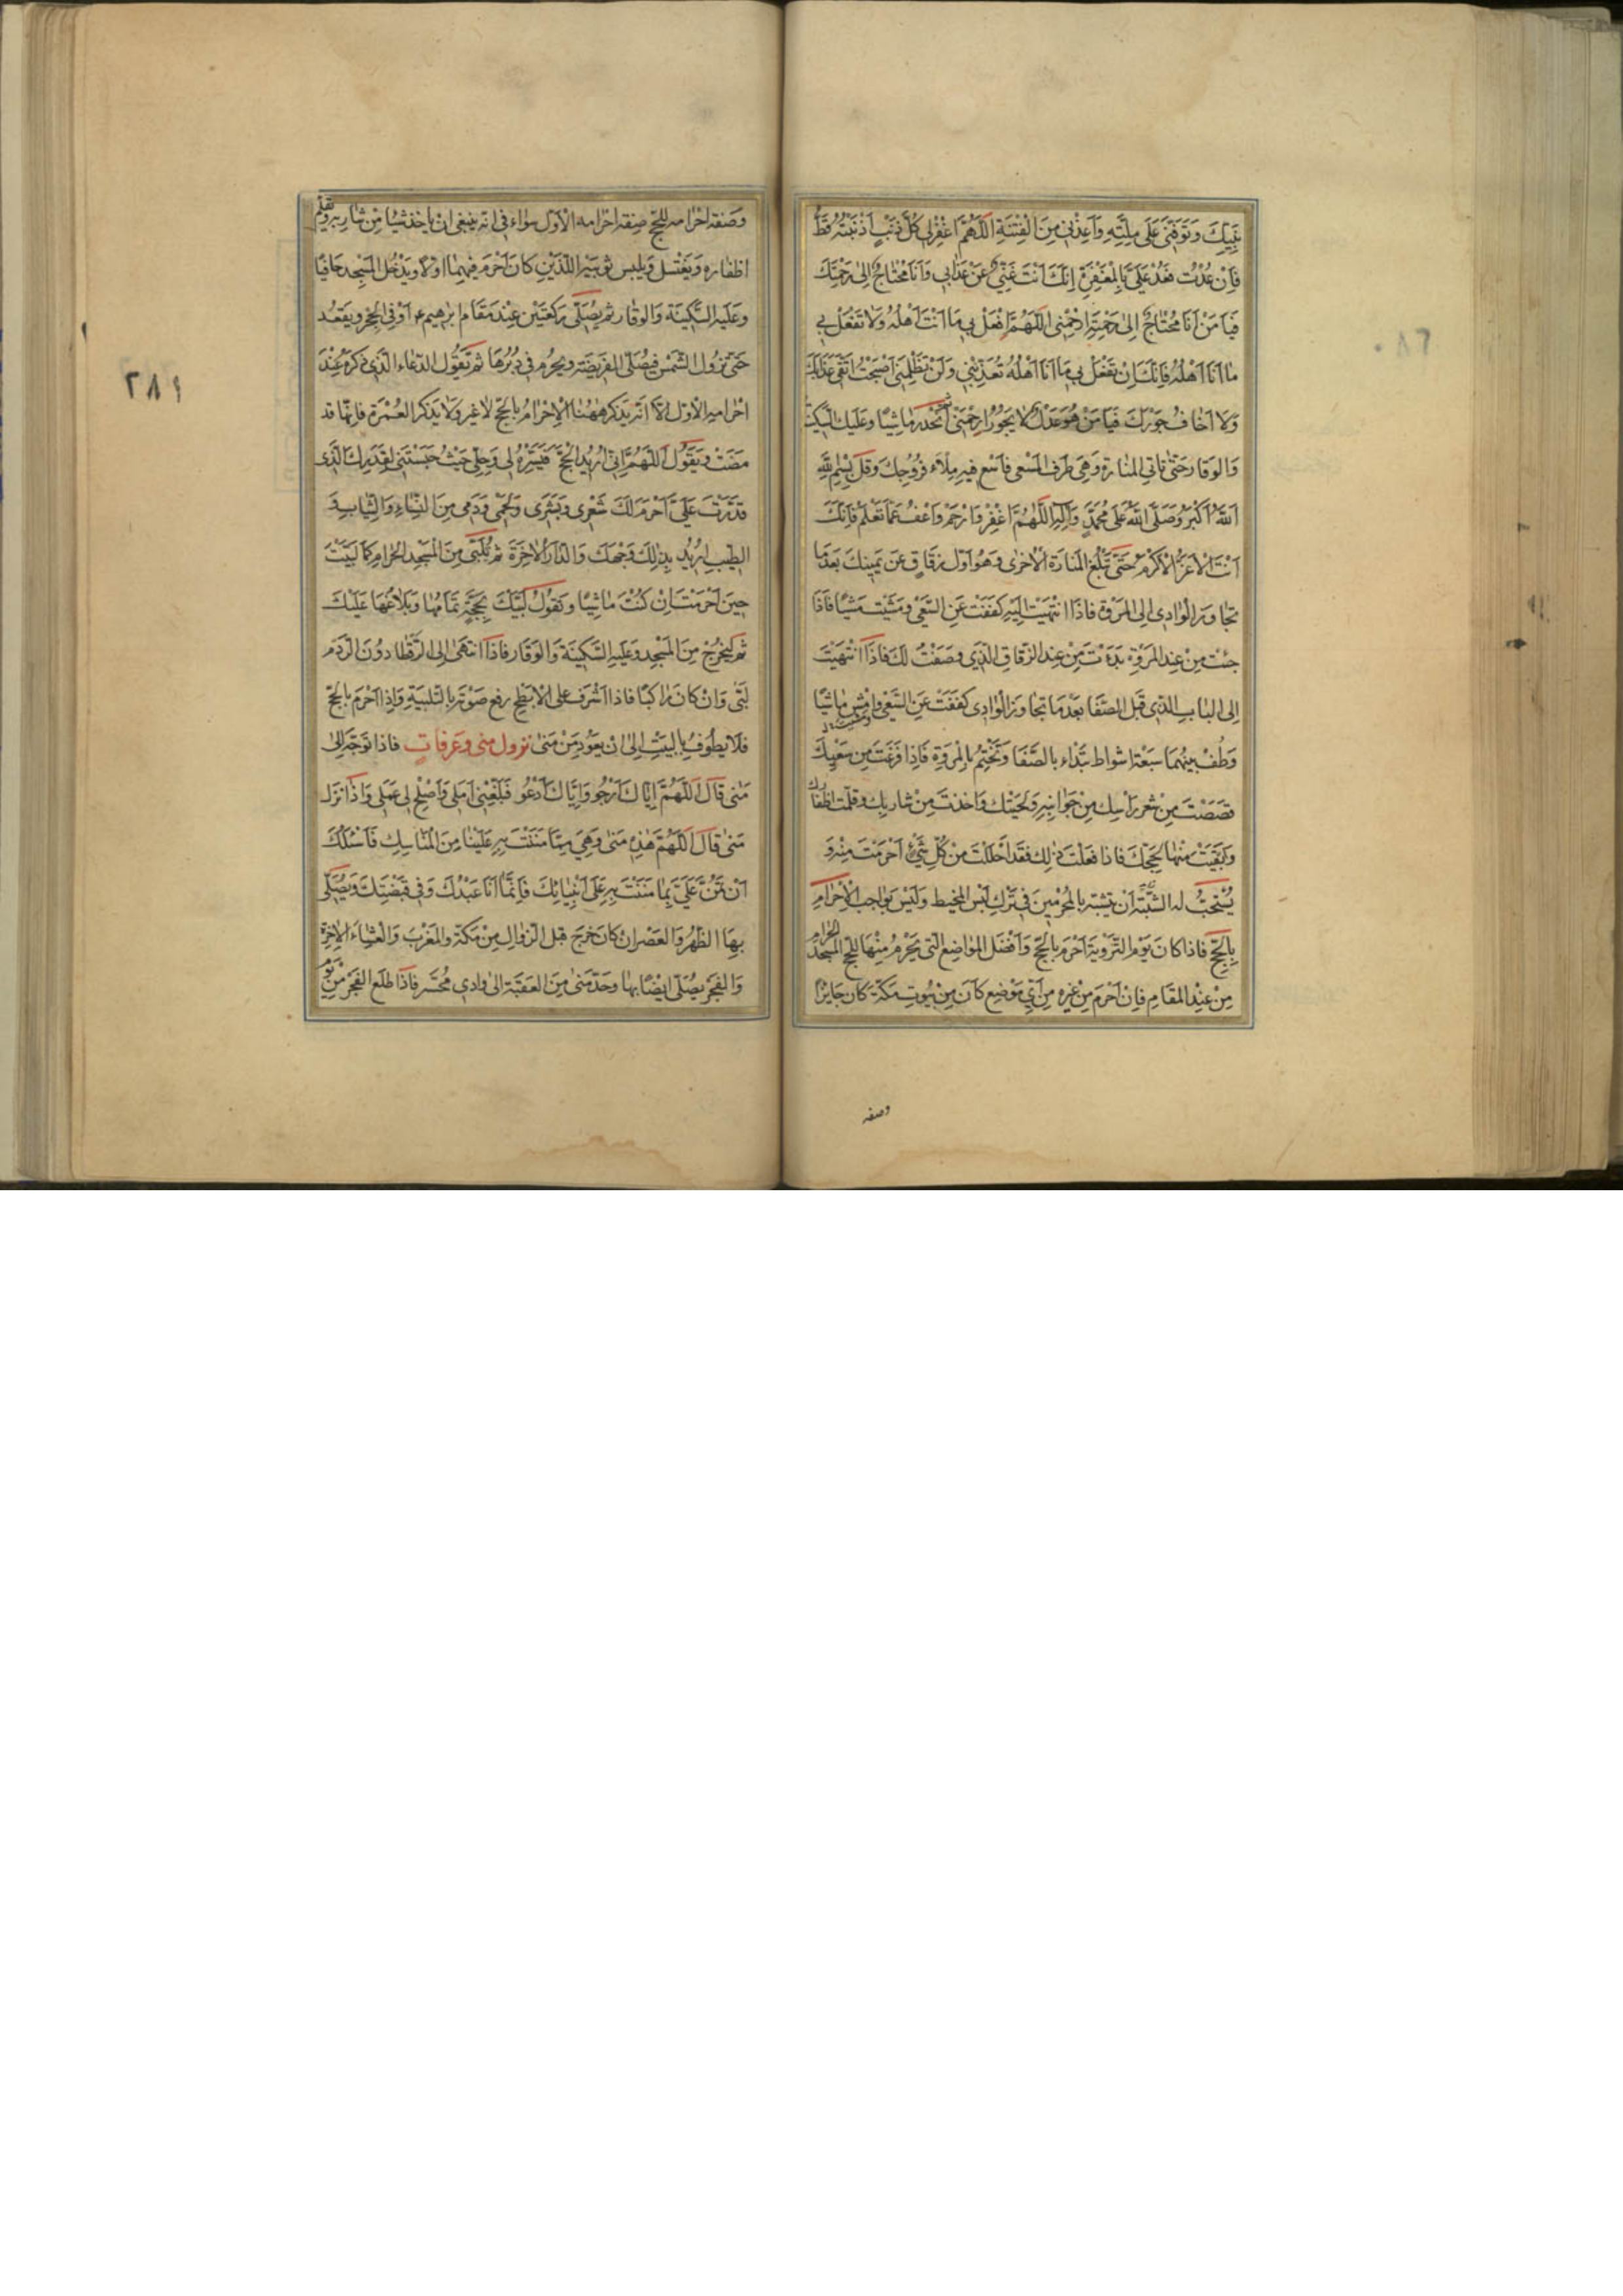 نَبِيِّكَ وَتَوَفَّنِي عَلَى مِلَّتِهِ وَاَعِذْنِي مِنَ الْفِتْنَةِ اَللّٰهُمَّ اغْفِرْلِي كُلَّ ذَنْبٍ اَذْنَبْتُهُ قَطُّ
فَاِنْ عُدْتُ فَعُدْ عَلَيَّ بِالْمَغْفِرَةِ اِنَّكَ اَنْتَ غَنِيٌّ عَنْ عَذَابِي وَاَنَا مُحْتَاجٌ اِلَى رَحْمَتِكَ
فَيَا مَنْ اَنَا مُحْتَاجٌ اِلَى رَحْمَتِهِ ارْحَمْنِي اَللّٰهُمَّ افْعَلْ بِي مَا اَنْتَ اَهْلُهُ وَلَا تَفْعَلْ بِي
مَا اَنَا اَهْلُهُ فَاِنَّكَ اِنْ تَفْعَلْ بِي مَا اَنَا اَهْلُهُ تُعَذِّبْنِي وَلَنْ تَظْلِمَنِي اَصْبَحْتُ اَتَّقِي عَدْلَكَ
وَلَا اَخَافُ جَوْرَكَ فَيَا مَنْ هُوَ عَدْلٌ لَا يَجُورُ ارْحَمْنِي ثم انْحَدِر مَاشِيًا وَعَلَيك السكينة
وَالوقار حَتّى تاتي المنارة وَهِيَ طَرف المَسْعى فَاسْعَ فيهِ مِلْاَء فُرُوجِكَ وَقُلْ بِسْمِ اللّٰهِ
اَللّٰهُ اَكْبَرُ وَصَلَّى اللّٰهُ عَلَى مُحَمَّدٍ وَآلِهِ اَللّٰهُمَّ اغْفِرْ وَارْحَمْ وَاعْفُ عَمَّا تَعْلَمُ فَاِنَّكَ
اَنْتَ الْاَعَزُّ الْاَكْرَمُ حَتّى تَبْلُغَ المَنَارَةَ الْاُخْرى وَهُوَ اَوّل زقاق عَن يَمِينِكَ بَعْدَ مَا
تجاوز الوادي الى المَرْوَة فَاذَا انْتَهَيْتَ اِلَيْهِ كَفَفْتَ عَنِ السَّعْي وَمَشَيْتَ مَشْيًا فَاذَا
جئت مِنْ عِنْدِ المَرْوَةِ بَدَءْتَ مِنْ عِنْدِ الزّقاق الّذي وَصَفْتُ لَكَ فَاذَا انْتَهَيْتَ
اِلى الباب الّذي قبَل الصَّفَا بَعْدَمَا تجاوز الوادي كفَفْتَ عَنِ السَّعْي وَامْشِ مَاشِيًا
وَطُفْ بينهُمَا سَبْعَة اشواط تَبْدَاء بالصَّفَا وَتَخْتِمُ بِالْمَرْوَةِ فَاِذَا فَرَغْتَ مِن سَعْيِكَ
قصَصْتَ مِنْ شعر رَأسِكَ مِنْ جَوَانِبِهِ وَلِحْيَتِكَ وَاَخَذْتَ مِنْ شارِبِكَ وَقلّمْت اظْفارك
وَبَقَّيْتَ مِنْهَا لِحَجِّكَ فَاذا فعَلْتَ ذلِكَ فقَد اَحْلَلْتَ مِنْ كُلّ شَيْءٍ اَحْرَمْتَ مِنْهُ وَ
يُسْتَحَبُّ له اَنْ يَتَشبّه بالمُحْرِمِينَ فى تَرْكِ لُبْسِ المخيط وَلَيْسَ بوَاجب الْاِحْرَامِ
بِالحَجِّ فَاذا كانَ يَوْم التّرْوِيَة اَحْرَمَ بالحَجّ وَاَفضَل المَوَاضِع الّتي يُحْرِم مِنْهَا للحَجّ المَسْجِد الحرام
مِنْ عِنْدِ المقَام فاِنْ اَحْرَمَ مِن غيره مِن اَيّ مَوْضِع كانَ مِن بُيُوتِ مَكّة كان جَايزًا
وصفه
٢٨١
وَصفة احْرَامه للحَجّ صِفَة احْرَامه الْاَوّل سَواء فى انّه ينبغى ان ياخذ شيئا مِنْ شاربه ويقلّم
اظفاره وَيَغتسل وَيلبس ثوبَيْه اللّذَيْنِ كانَ اَحْرَمَ فِيهِمَا اوّلًا وَيَدْخُل المَسْجِد حَافيًا
وعَلَيه السَّكينَة وَالوقار ثم يُصَلّى رَكعَتَيْن عِنْدَ مَقَام ابرهيم ع اَوْ فى الحِجْر ويَقعُد
حَتّى تزُول الشّمْس فيُصَلّى الفَريضَة ويحرم في دُبُرِهَا ثم يَقُول الدّعَاء الّذي ذكره عِنْدَ
احْرامه الْاَوّل الّا انّه يَذكر هٰهُنَا الْاِحْرَامُ بالحَجّ لا غير وَلا يَذكر العُمْرَة فانّها قد
مَضَتْ وَيَقول اَللّٰهُمَّ اِنِّي اُرِيدُ الْحَجَّ فَيَسِّرْهُ لِي وَحِلَّنِي حَيْثُ حَبَسْتَنِي لِقَدَرِكَ الَّذِي
قَدَّرْتَ عَلَيَّ اَحْرَمَ لَكَ شَعْرِي وَبَشَرِي وَلَحْمِي وَدَمِي مِنَ النِّسَاءِ وَالثِّيَابِ وَ
الطِّيبِ اُرِيدُ بِذٰلِكَ وَجْهَكَ وَالدَّارَ الْاٰخِرَةَ ثم تُلَبِّى مِنَ المَسْجِد الحَرَامِ كَمَا لَبَّيْتَ
حِينَ اَحْرَمْتَ اِنْ كُنْتَ مَاشِيًا وَتقولُ لَبَّيْكَ بِحَجَّةٍ تَمَامُهَا وَبَلَاغُهَا عَلَيْكَ
ثم ليَخرُجْ مِنَ المَسْجِد وعَلَيه السَّكينَة وَالوقَار فَاذَا انتَهَى اِلى الرّقْطا دوُنَ الرَّدْم
لَبّى وَانْ كانَ رَاكبًا فاذا اشرَف على الْاَبْطَحِ رفع صَوْتَه بالتَّلبيَة وَاِذَا اَحْرَم بالحَجّ
فلَا يطوفُ بِالبيَتِ اِلى انْ يعَوُد مِنْ مَنى نزول منى وعرفات فاذا توجّه اِلى
مَنى قال اَللّٰهُمَّ اِيَّاكَ اَرْجُو وَاِيَّاكَ اَدْعُو فَبَلِّغْنِي اَمَلِي وَاَصْلِحْ لِي عَمَلِي وَاذَا نزل
مَنى قالَ اَللّٰهُمَّ هٰذِهِ مَنى وَهِيَ مِمَّا مَنَنْتَ بِهِ عَلَيْنَا مِنَ الْمَنَاسِكِ فَاَسْئَلُكَ
اَنْ تَمُنَّ عَلَيَّ بِمَا مَنَنْتَ بِهِ عَلَى اَنْبِيَائِكَ فَاِنَّمَا اَنَا عَبْدُكَ وَفِي قَبْضَتِكَ وَيُصَلّى
بِهَا الظّهْر وَالعَصْر انْ كانَ خَرَجَ قبل الزّوال مِنْ مَكّة والمَغْرَب وَالعِشَاء الاٰخِرَة
وَالفجَر يصُلّى ايضًا بها وحَدّ مَنى مِنَ العَقَبَة الى وَادي مُحسّر فَاذَا طَلَعَ الفَجْر مِنْ يَوْم